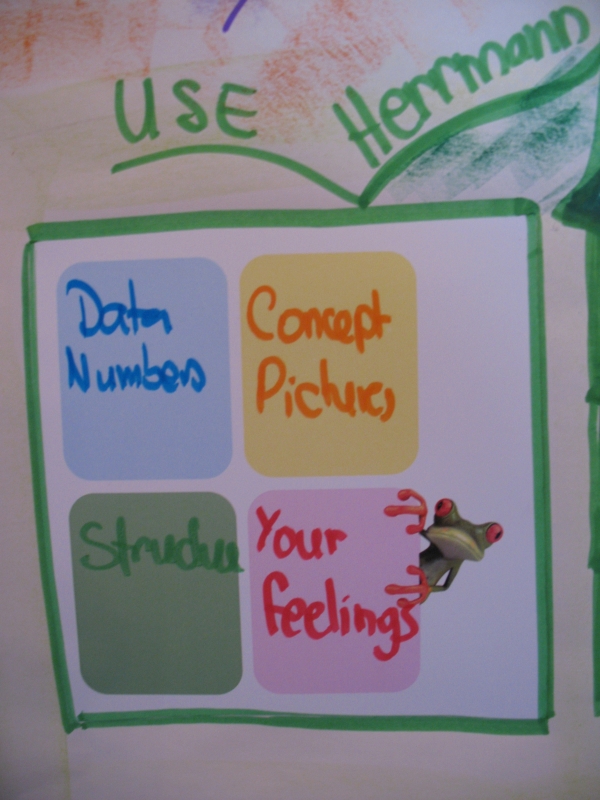 USE Herrmann
Data
Numbers
Concept
Pictures
Structure
Your
feelings